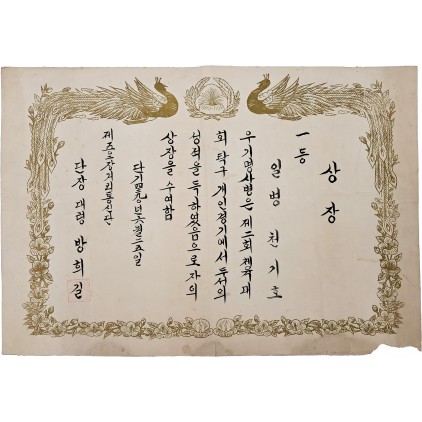 상장
일등
일병 천기호
우기명사병은 제二회 체육대
회 탁구 개인경기에서 두서의
성적을 득하였음으로 자의
상장을 수여함
단기 二五일
단장 대령 방희길